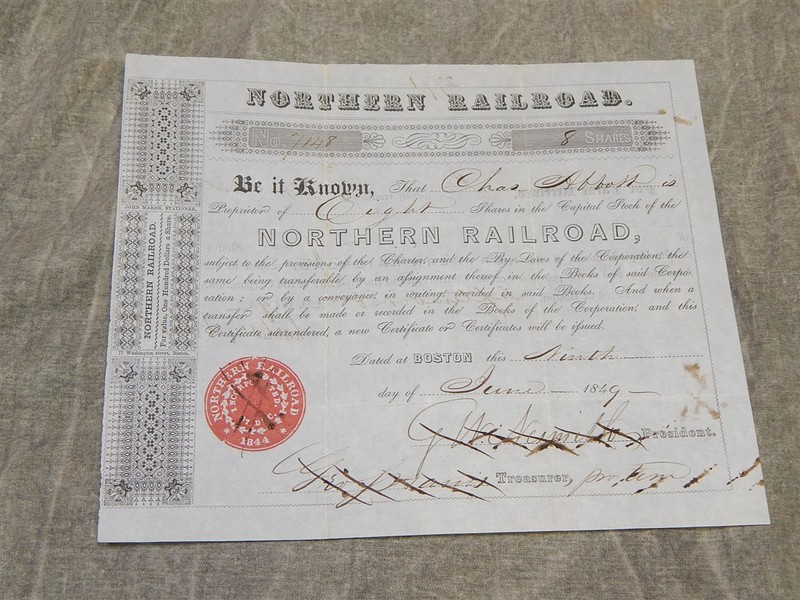 NORTHERN RAILROAD.
No. 7148 8 SHARES
Be it Known, That Chas Abbott is
Proprietor of Eight Shares in the Capital Stock of the
NORTHERN RAILROAD,
subject to the provisions of the Charter, and the By-Laws of the Corporation; the
same being transferable by an assignment thereof in the Books of said Corpo-
ration; or by a conveyance in writing, recorded in said Books. And when a
transfer shall be made or recorded in the Books of the Corporation, and this
Certificate surrendered, a new Certificate or Certificates will be issued.
Dated at BOSTON this Ninth
day of June 1849
President.
Treasurer, pro. tem
JOHN MARSH, STATIONER,
NORTHERN RAILROAD.
Par value, One Hundred Dollars a Share.
77 Washington street, Boston.
NORTHERN RAILROAD
INCORPORATED.
27 DEC.
1844